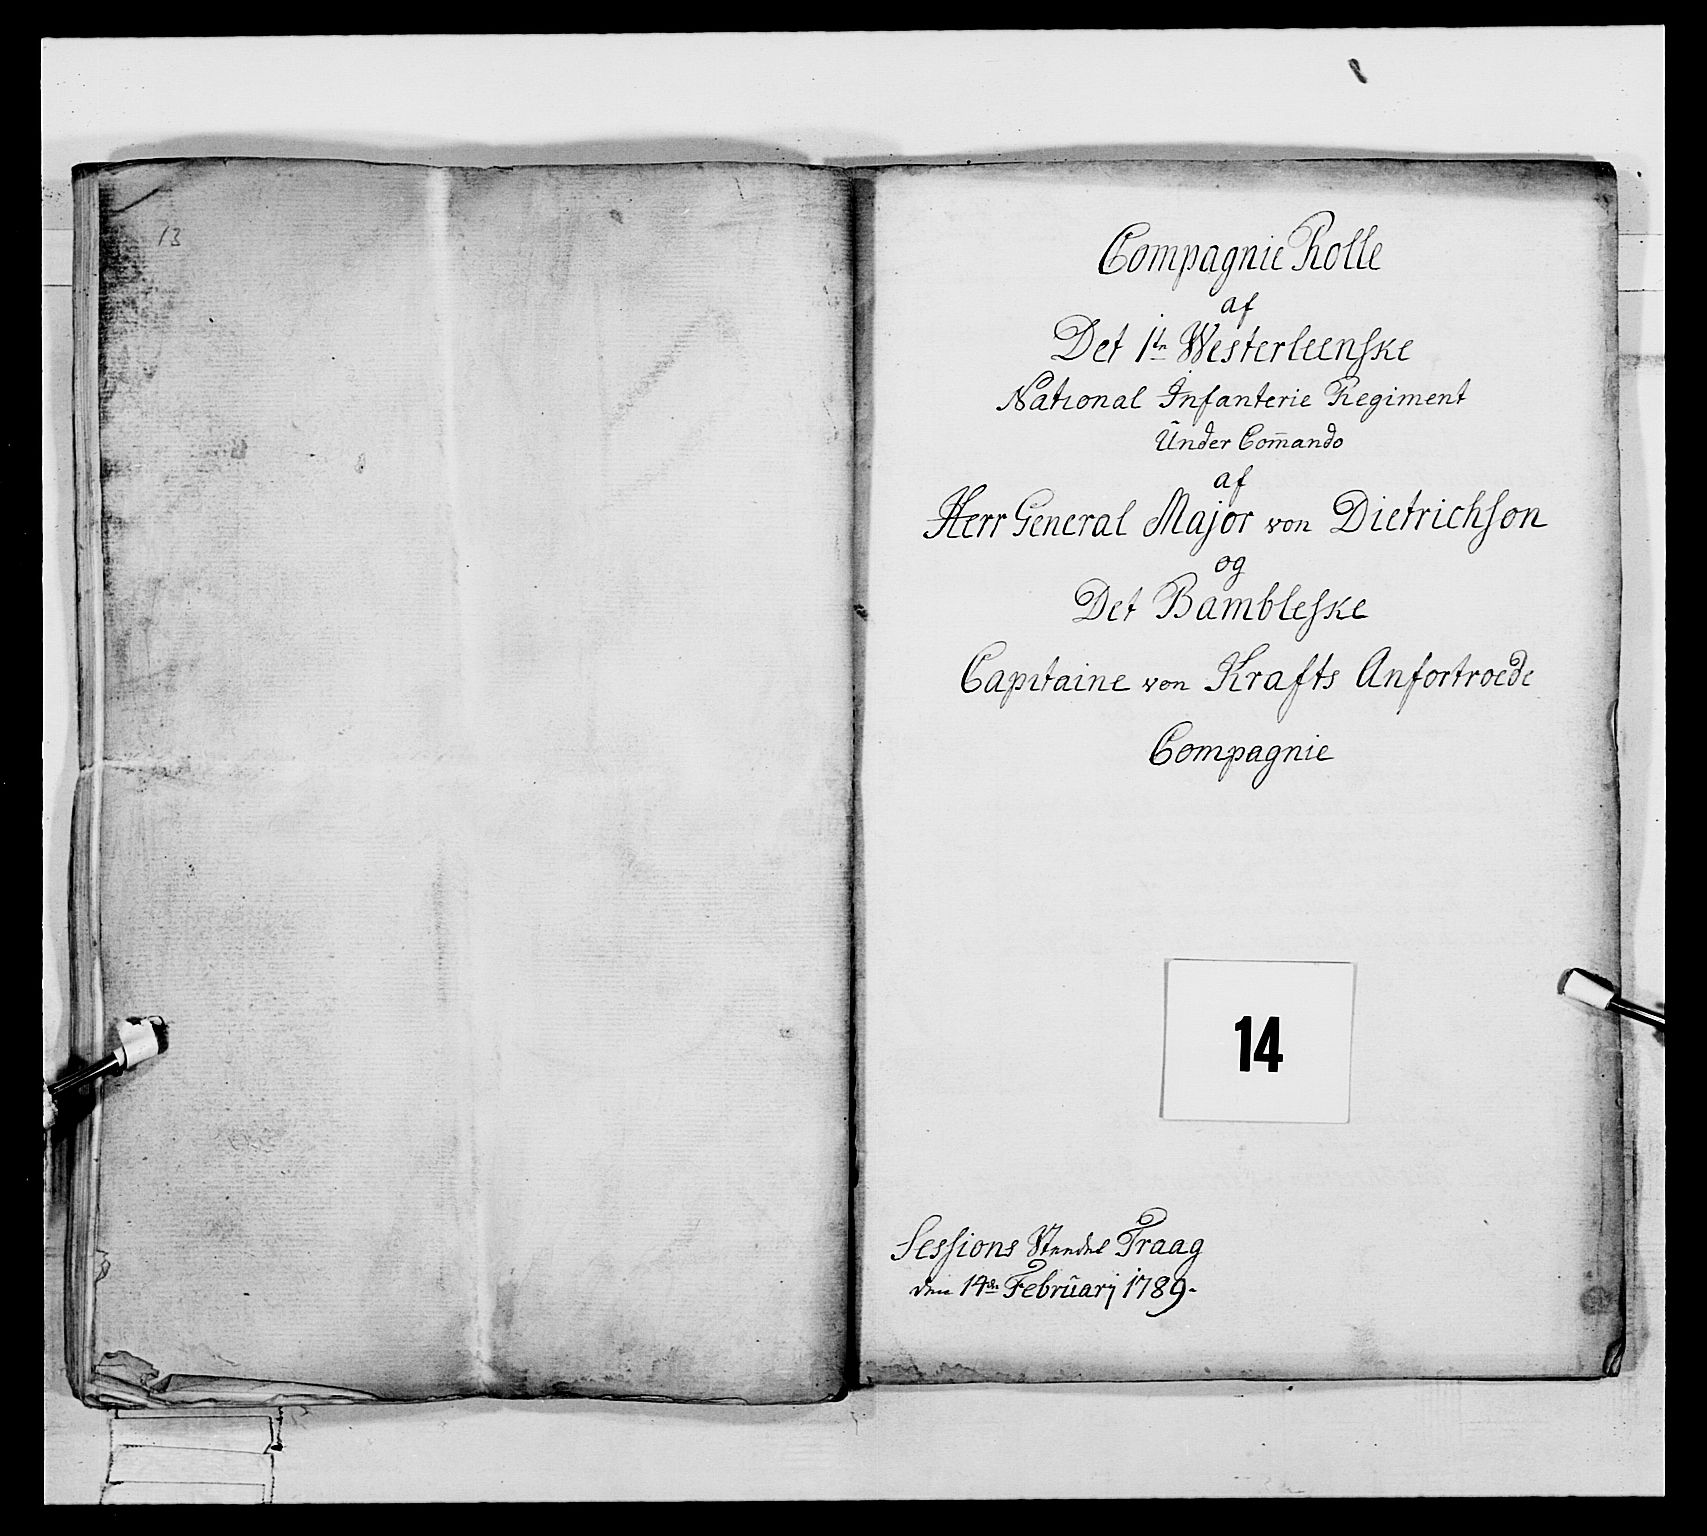 13
Compagnie Rolle
af
Det 1ste Westerleenske
National Infanterie Regiment
Ŭnder Com̄ando
af
Herr General Major von Dietrichson
og
Det Bambleske
Capitaine von Krafts Anfortroede
Compagnie
14
Sessions Steedet Traag
den 14de Febrŭarj 1789.